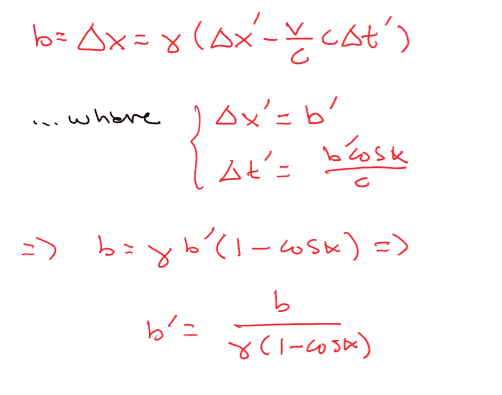 b = Δx = γ (Δx' - v/c cΔt')
... where { Δx' = b'
Δt' = b'cosα/c
=> b = γ b' (1 - cosα) =>
b' = b/γ(1 - cosα)